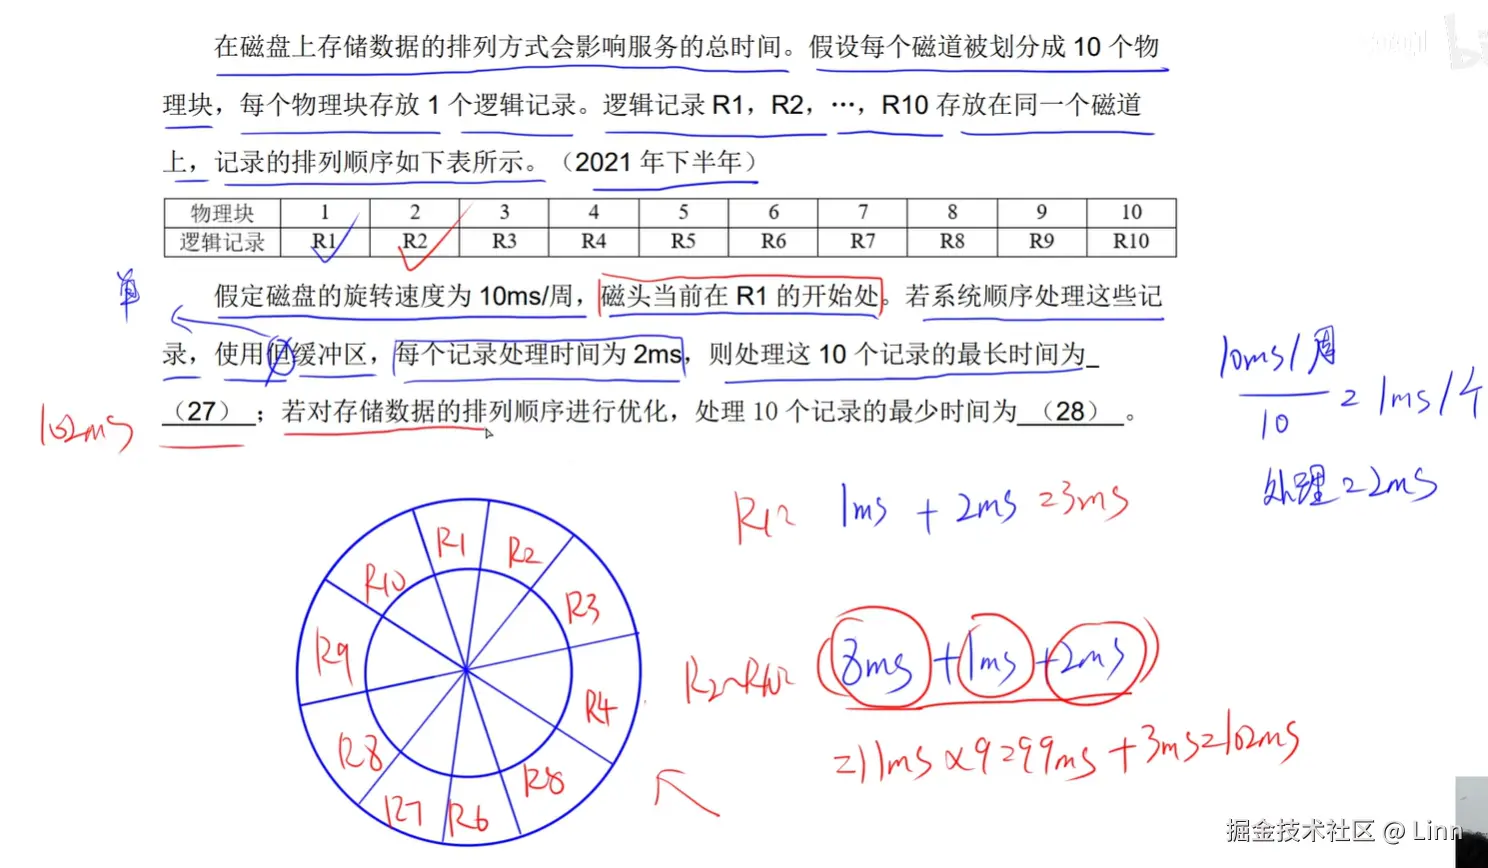 在磁盘上存储数据的排列方式会影响服务的总时间。假设每个磁道被划分成 10 个物
理块，每个物理块存放 1 个逻辑记录。逻辑记录 R1，R2，…，R10 存放在同一个磁道
上，记录的排列顺序如下表所示。（2021 年下半年）
物理块 1 2 3 4 5 6 7 8 9 10
逻辑记录 R1 R2 R3 R4 R5 R6 R7 R8 R9 R10
单
假定磁盘的旋转速度为 10ms/周，磁头当前在 R1 的开始处。若系统顺序处理这些记
录，使用但缓冲区，每个记录处理时间为 2ms，则处理这 10 个记录的最长时间为
（27）；若对存储数据的排列顺序进行优化，处理 10 个记录的最少时间为（28）。
102ms
10ms/周
10
=1ms/个
处理=2ms
R1: 1ms + 2ms =3ms
R2~R10: (8ms +1ms +2ms)
=11ms×9=99ms+3ms=102ms
R1
R2
R3
R4
R8
R6
R7
R8
R9
R10
掘金技术社区 @ Linn